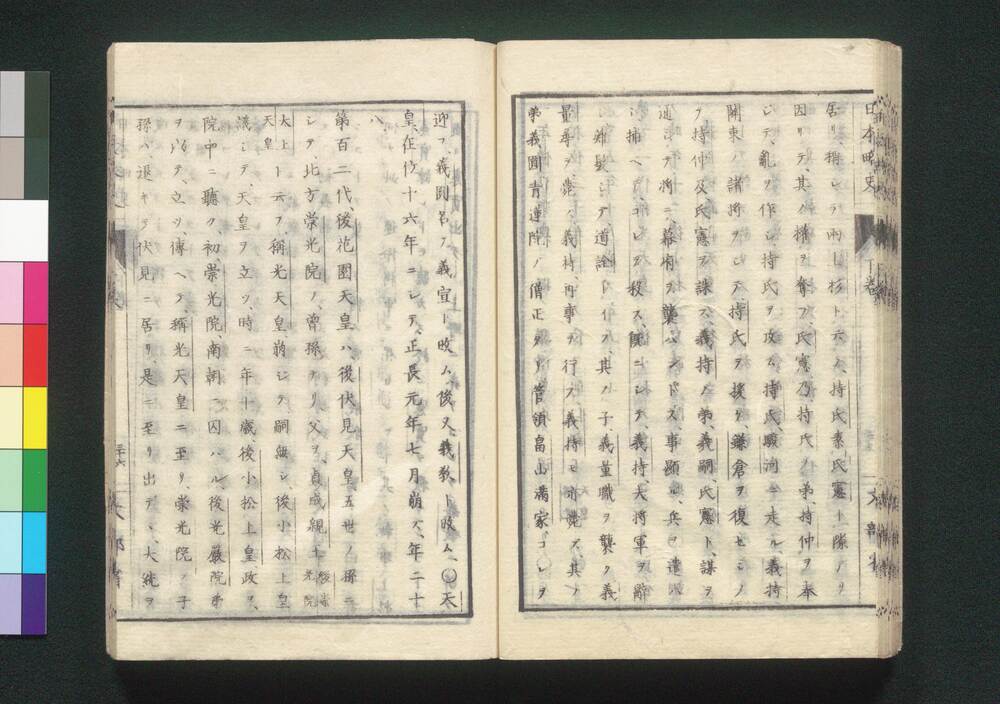 日本略史 下卷
居リ、稱シテ両上杉ト云フ、持氏素氏憲ト隙アリ
因リテ、其ノ職ヲ奪フ、氏憲乃持氏ノ弟、持仲ヲ奉
シテ、亂ヲ作シ持氏ヲ攻ム、持氏、駿河ニ走ル、義持
関東ノ諸将ヲシテ、持氏ヲ援ケ、鎌倉ヲ復セシメ
テ持仲及氏憲ヲ誅ス、義持ノ弟、義嗣、氏憲ト、謀ヲ
通シテ将ニ、幕府ヲ襲ハントス、事顕ル、兵ヲ遣ハ
シ捕ヘテ、コレヲ殺ス、既ニシテ、義持、大将軍ヲ辭
シ、薙髮シテ道詮ト、イフ、其ノ子義量職ヲ襲ク、義
量尋テ薨ス、義持、再事ヲ行フ、義持モ亦薨ス、其ノ
弟義圓青蓮院ノ僧正タリ、管領畠山滿家、コレヲ
迎フ、義圓名ヲ義宣ト改ム、後又義教ト改ム、○天
皇、在位十六年ニシテ、正長元年七月崩ス、年二十
八
第百二代、後花園天皇ハ、後伏見天皇、五世ノ孫ニ
シテ、北方崇光院ノ、曾孫ナリ、父ヲ、貞成親王 後崇光院
太上天皇 ト云フ、稱光天皇、崩シテ、嗣無シ、後小松上皇
議シテ、天皇ヲ立ツ、時ニ年十歳後小松上皇政ヲ、
院中ニ聽ク、初、崇光院、南朝ニ囚ハル、後光嚴院弟
ヲ以テ、立ツ、傳ヘテ、稱光天皇ニ至リ、崇光院ノ子
孫ハ退キテ伏見ニ居リ、是ニ至リ出テヽ、大統ヲ